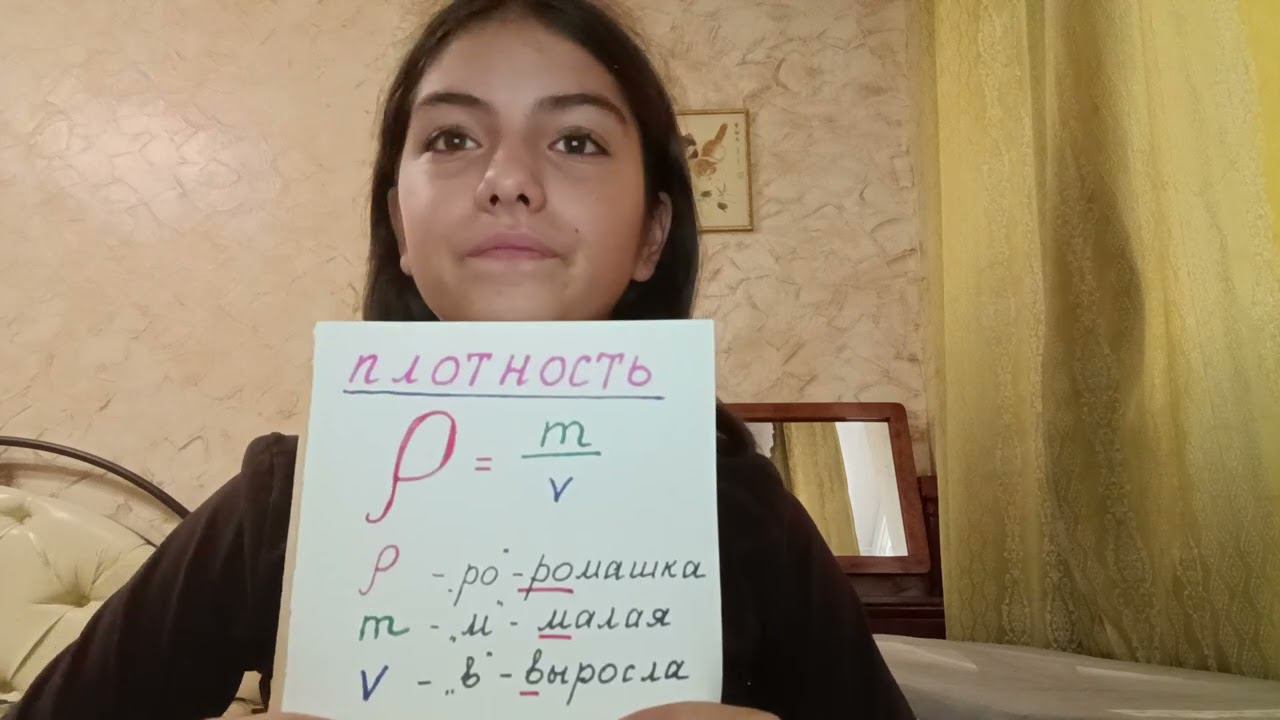 ПЛОТНОСТЬ
ρ = m/v
ρ - „ро" - ромашка
m - „м" - малая
v - „в" - выросла